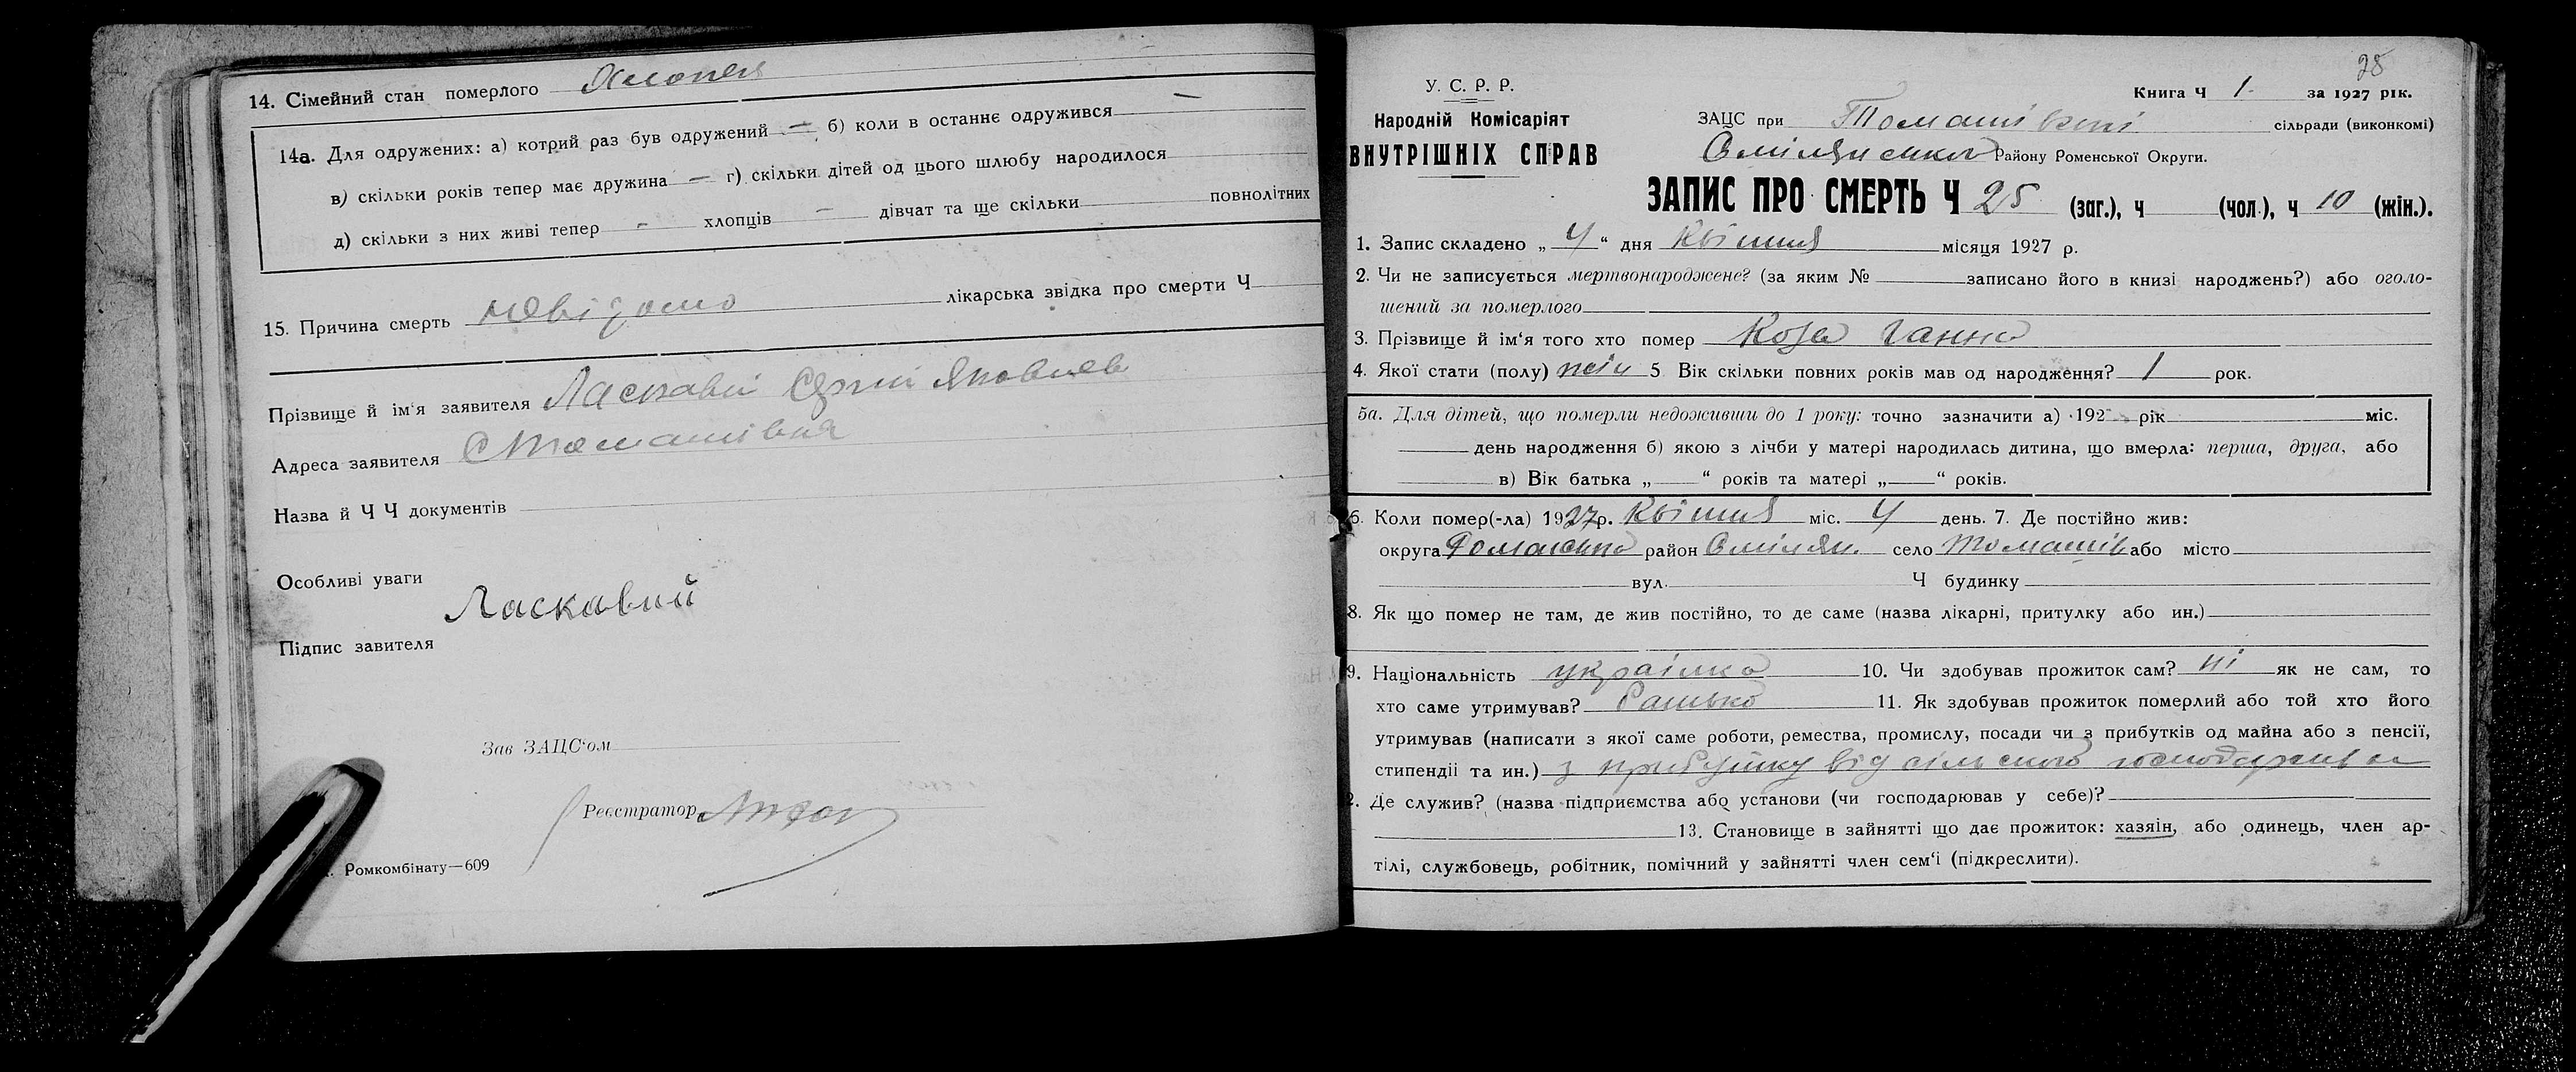 14. Сімейний стан померлого
14а. Для одружених: а) котрий раз був одружений — б) коли в останнє одружився —
в) скільки років тепер має дружина — г) скільки дітей од цього шлюбу народилося
д) скільки з них живі тепер - хлопців — дівчат та ще скільки повнолітних
15. Причина смерть невідомо лікарська звідка про смерти Ч
Прізвище й ім'я заявителя Ласкавий Сергій Яковлев
Адреса заявителя с Томашівка
Назва й Ч Ч документів
Особливі уваги
Підпис завителя Ласкавий
Зав ЗАЦС'ом
Реєстратор
Ромкомбінату—609
28
У. С. Р. Р.
Народній Комісаріят
ВНУТРІШНІХ СПРАВ
Книга Ч 1. за 1927 рік.
ЗАЦС при Томашівські сільради (виконкомі)
Смілянського Району Роменської Округи.
ЗАПИС ПРО СМЕРТЬ Ч 25 (заг.), ч (чол.), ч 10 (жін.).
1. Запис складено „ 4 “ дня Квітня місяця 1927 р.
2. Чи не записується мертвонароджене? (за яким № записано його в книзі народжень?) або оголо-
шений за померлого
3. Прізвище й ім'я того хто помер Коза Ганна
4. Якої стати (полу) жін 5 Вік скільки повних років мав од народження? 1 рок.
5а. Для дітей, що померли недоживши до 1 року: точно зазначити а) 192 рік міс.
день народження б) якою з лічби у матері народилась дитина, що вмерла: перша, друга, або
в) Вік батька „ “ років та матері „ “ років.
6. Коли помер(-ла) 1927р. Квітня міс. 4 день. 7. Де постійно жив:
округа Роменська район Смілян. село Томашів або місто
вул. Ч будинку
8. Як що помер не там, де жив постійно, то де саме (назва лікарні, притулку або ин.)
9. Національність українка 10. Чи здобував прожиток сам? ні як не сам, то
хто саме утримував? батько 11. Як здобував прожиток померлий або той хто його
утримував (написати з якої саме роботи, ремества, промислу, посади чи з прибутків од майна або з пенсії,
стипендії та ин.) з прибутку від сільського господарства
2. Де служив? (назва підприємства або установи (чи господарював у себе)?
13. Становище в зайнятті що дає прожиток: хазяїн, або одинець, член ар-
тілі, службовець, робітник, помічний у зайнятті член сем'ї (підкреслити).